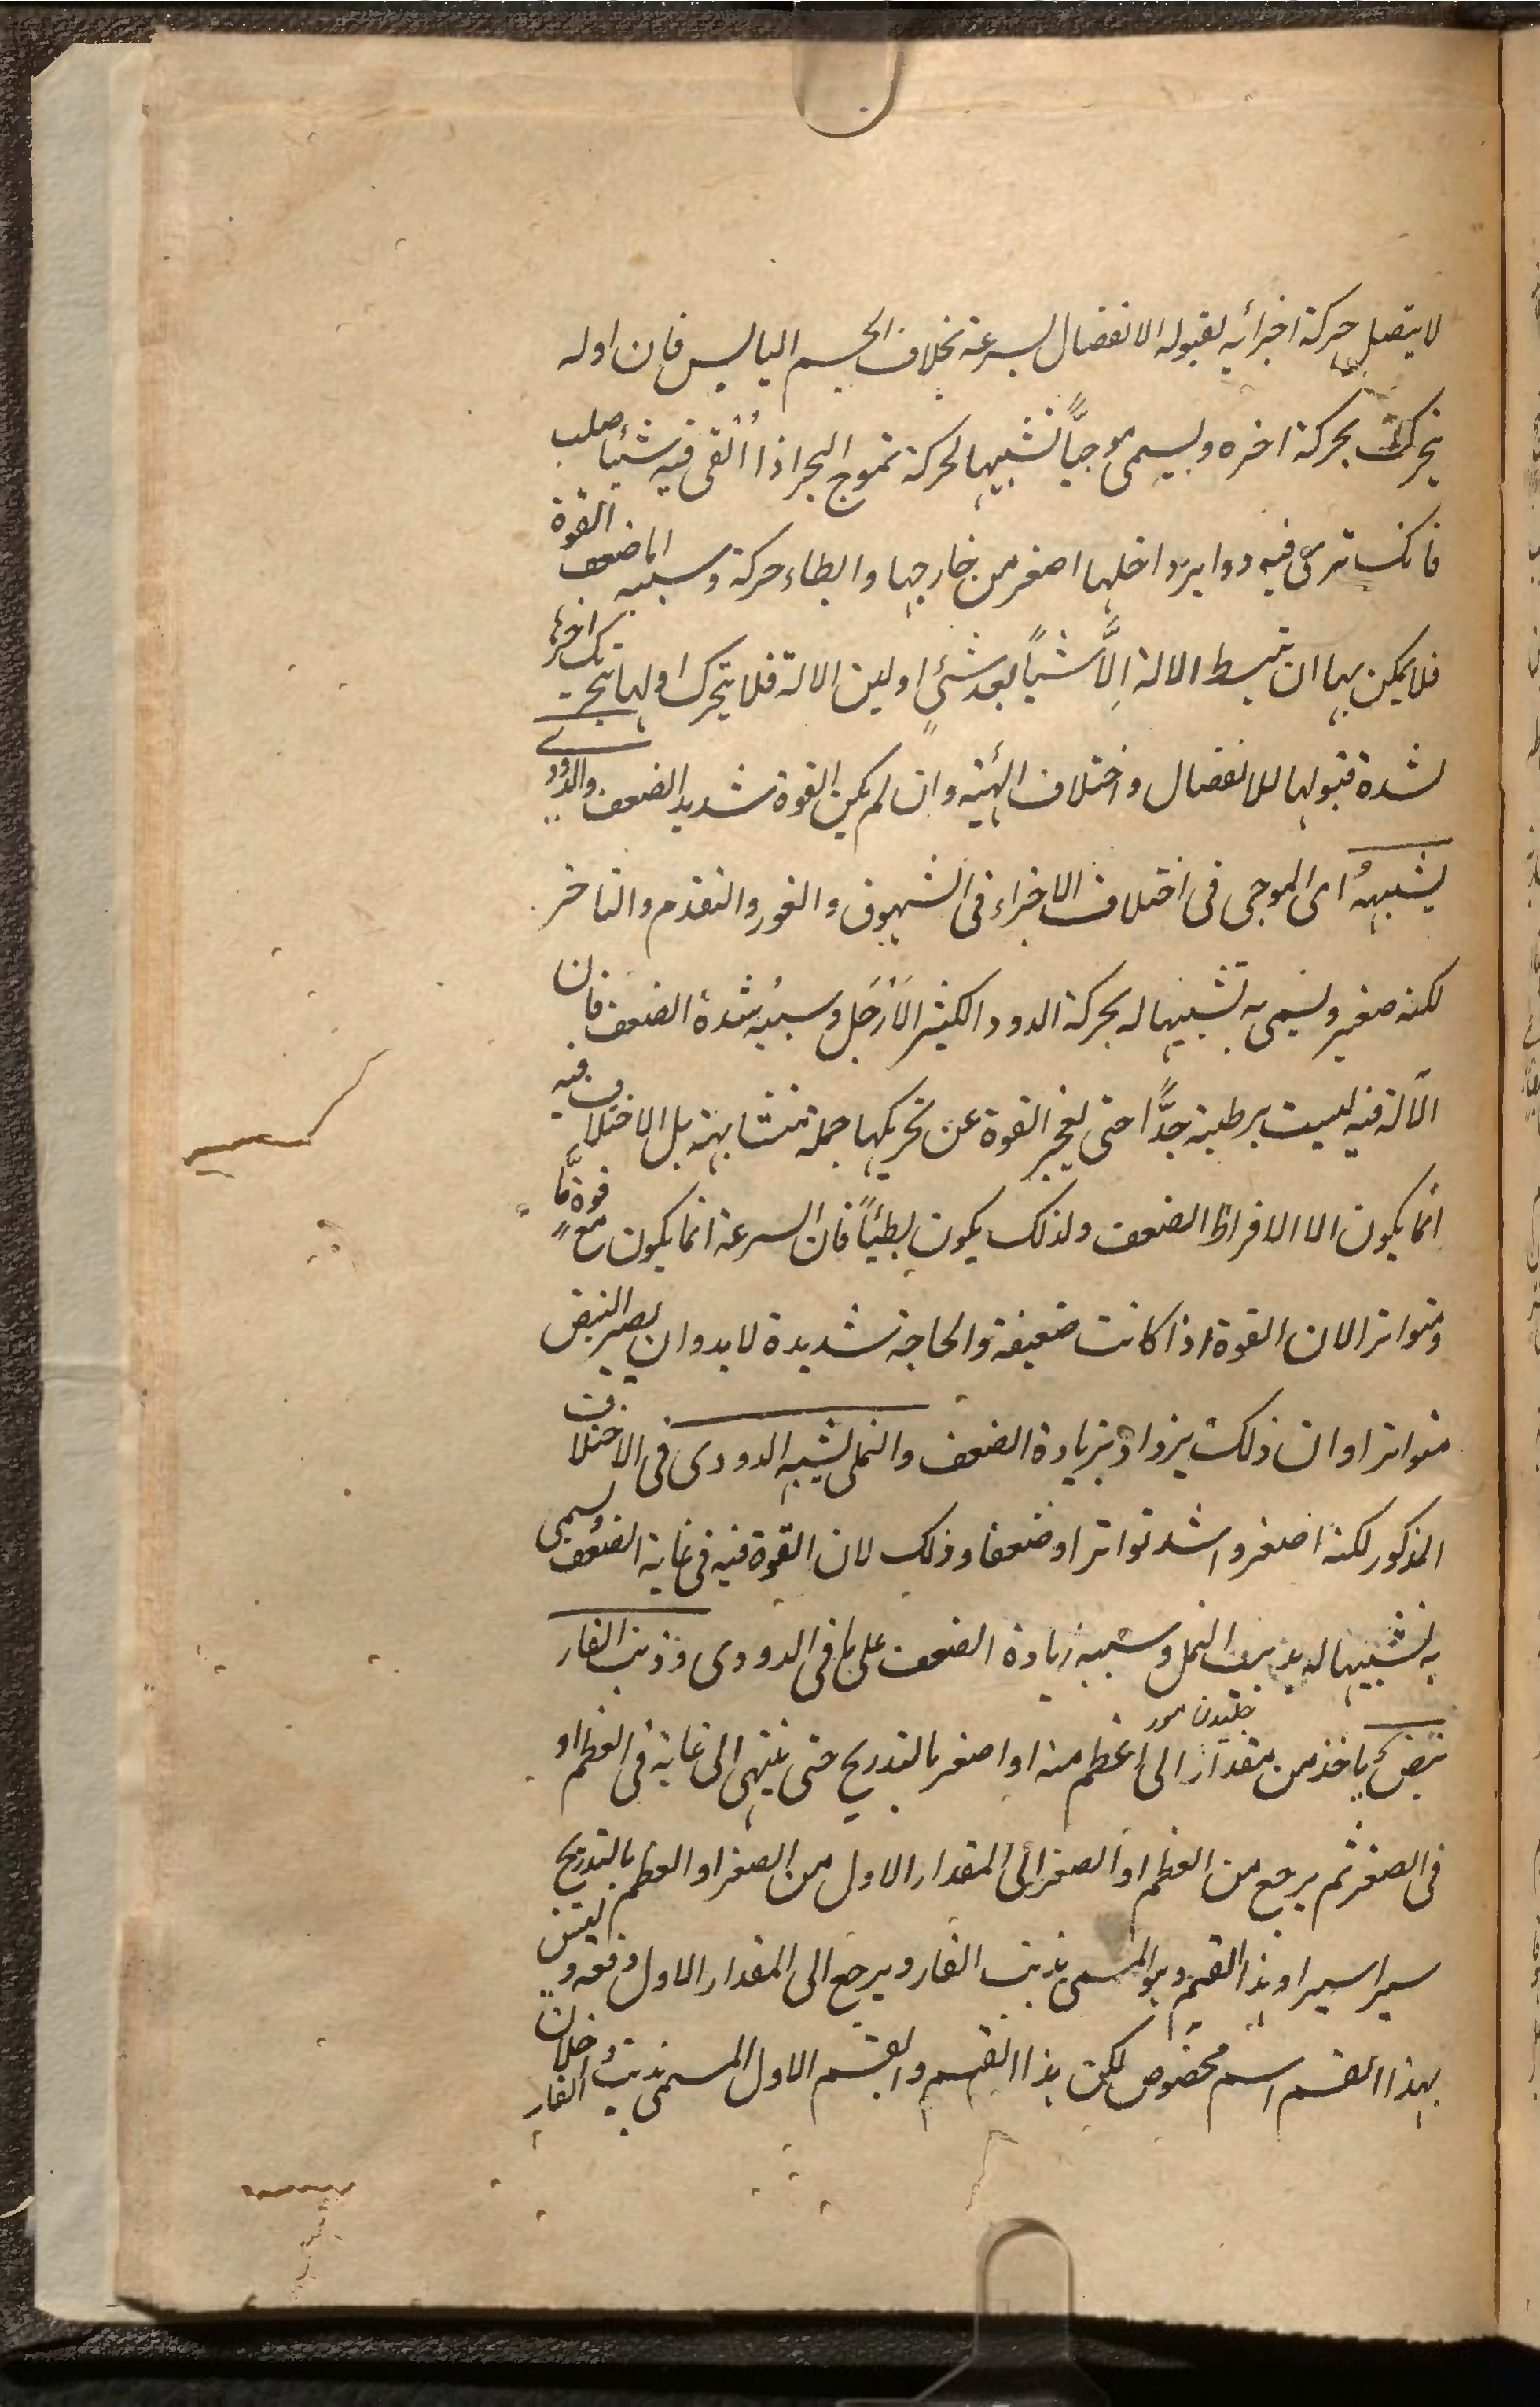 لا يتصل حركة اجزائه لقبوله الانفصال بسرعة بخلاف الجسم اليابس فان اوله
يتحرك بحركة اخره ويسمى موجيًّا تشبيها لحركة تموج البحر اذا اُلْقى فيه شيئا صلب
فانك ترى فيه دواير داخلها اصغر من خارجها وابطاء حركة وسببه اما ضعف القوة
فلا يمكن بها ان تبسط الالة اِلَّا شيأً بعد شئٍ او لين الالة فلا يتحرك اولها بتحرك اخرها
لشدة قبولها للانفصال واختلاف الهيئة وان لم يكن القوة شديد الضعف والدودى
يشبههُ اى الموجى فى اختلاف الاجزاء فى الشهوق والغور والتقدم والتاخر
لكنه صغير ويسمى به تشبيها له بحركة الدود الكثير الاَرْجَل وسببهُ شدة الضعف فان
الآلة فيه ليست برطبة جدًّا حتى يعجز القوة عن تحريكها جملة متشابهة بل الاختلاف فيه
انما يكون الا الافراط الضعف ولذلك يكون بطيئاً فان السرعة انما يكون مع قوةٍ مَّا
ومتواترا لان القوة اذا كانت ضعيفة والحاجة شديدة لابد وان يصير النبض
متواترا وان ذلك يزداد بزيادة الضعف والنملى يشبه الدودى فى الاختلاف
المذكور لكنه اصغر واشد تواترا وضعفا وذلك لان القوة فيه فى غاية الضعف ويسمى
به تشبيها له بدبيب النمل وسببه زيادة الضعف على ما فى الدودى وذنب الفار
جنبيدن مور
نبض ياخذ من مقدار الى اعظم منه او اصغر بالتدريج حتى ينتهى الى غاية فى العظم او
فى الصغر ثم يرجع من العظم او الصغر الى المقدار الاول من الصغر او العظم بالتدريج
يسيرا يسيرا وهذا القسم وهو المسمى بذنب الفار ويرجع الى المقدار الاول دفعة وليس
بهذا القسم اسم مخصوص لكن هذا القسم والقسم الاول المسمى بذنب الفار داخلان